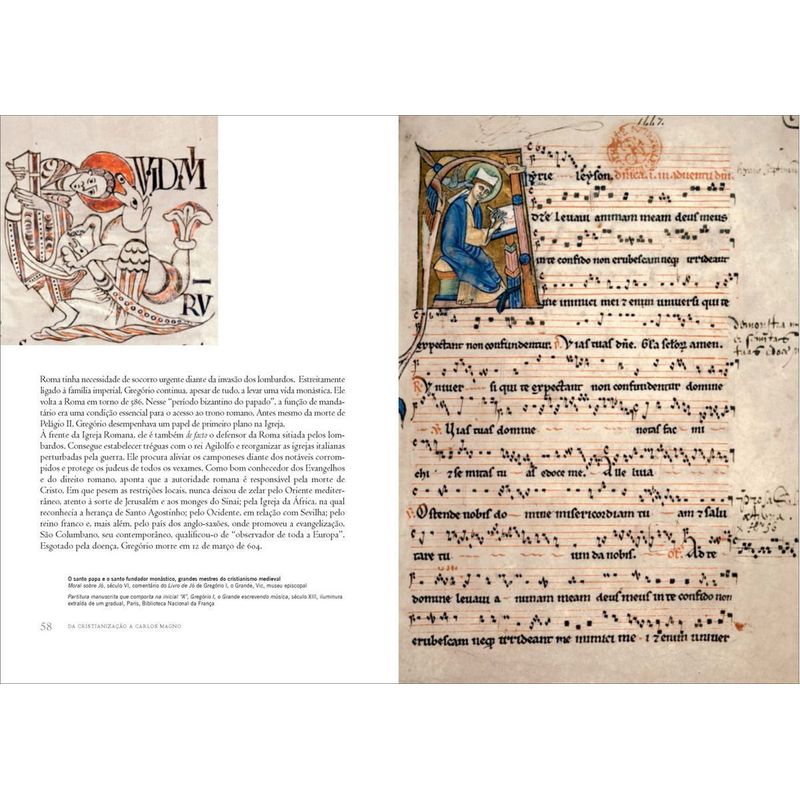 VIDIM
RV
Roma tinha necessidade de socorro urgente diante da invasão dos lombardos. Estreitamente
ligado à família imperial, Gregório continua, apesar de tudo, a levar uma vida monástica. Ele
volta a Roma em torno de 586. Nesse “período bizantino do papado”, a função de manda-
tário era uma condição essencial para o acesso ao trono romano. Antes mesmo da morte de
Pelágio II, Gregório desempenhava um papel de primeiro plano na Igreja.
À frente da Igreja Romana, ele é também de facto o defensor da Roma sitiada pelos lom-
bardos. Consegue estabelecer tréguas com o rei Agilolfo e reorganizar as igrejas italianas
perturbadas pela guerra. Ele procura aliviar os camponeses diante dos notáveis corrom-
pidos e protege os judeus de todos os vexames. Como bom conhecedor dos Evangelhos
e do direito romano, aponta que a autoridade romana é responsável pela morte de
Cristo. Em que pesem as restrições locais, nunca deixou de zelar pelo Oriente mediter-
râneo, atento à sorte de Jerusalém e aos monges do Sinai; pela Igreja da África, na qual
reconhecia a herança de Santo Agostinho; pelo Ocidente, em relação com Sevilha; pelo
reino franco e, mais além, pelo país dos anglo-saxões, onde promoveu a evangelização.
São Columbano, seu contemporâneo, qualificou-o de “observador de toda a Europa”.
Esgotado pela doença, Gregório morre em 12 de março de 604.
O santo papa e o santo fundador monástico, grandes mestres do cristianismo medieval
Moral sobre Jó, século VI, comentário do Livro de Jó de Gregório I, o Grande, Vic, museu episcopal
Partitura manuscrita que comporta na inicial “A”, Gregório I, o Grande escrevendo música, século XIII, iluminura
extraída de um gradual, Paris, Biblioteca Nacional da França
58 DA CRISTIANIZAÇÃO A CARLOS MAGNO
1447.
kyrie leyson. dnica .i. in adventu dni.
D te levavi animam meam deus meus
in te confido non erubescam neqz irrideant
me inimici mei & enim universi qui te
expectant non confundentur. Ps. Vias tuas dne. Gla. seculor. amen.
Univer si qui te expectant non confundentur domine
Vias tuas domine notas fac mi
chi & semitas tuas edoce me. Alle luia
Ostende nobis do mine misericordiam tuam & salu
tare tuum da nobis. Of. Ad te
domine levavi animam meam deus meus in te confido non
erubescam neqz irrideant me inimici mei & enim univer